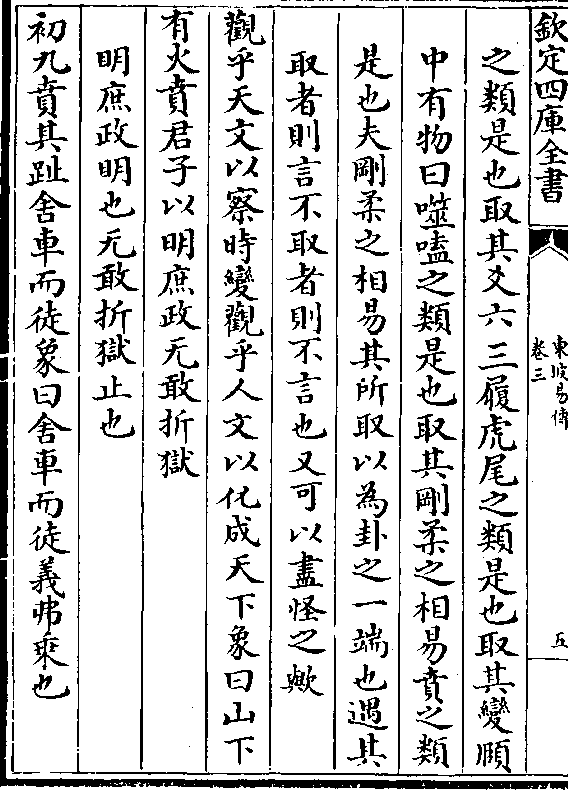 欽定四庫全書
東坡易傳
卷三
五
之類是也取其爻六三履虎尾之類是也取其變頤
中有物曰噬嗑之類是也取其剛柔之相易賁之類
是也夫剛柔之相易其所取以為卦之一端也遇其
取者則言不取者則不言也又可以盡怪之歟
觀乎天文以察時變觀乎人文以化成天下象曰山下
有火賁君子以明庶政无敢折獄
明庶政明也无敢折獄止也
初九賁其趾舍車而徒象曰舍車而徒義弗乘也